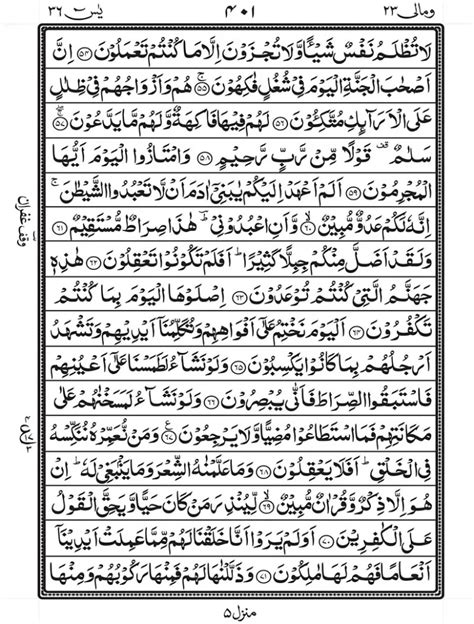 ومالی ٢٣ ۴٠١ یٰسٓ ٣٦
لَا تُظْلَمُ نَفْسٌ شَيْـًٔا وَّلَا تُجْزَوْنَ اِلَّا مَا كُنْتُمْ تَعْمَلُوْنَ ﴿٥٤﴾ اِنَّ
اَصْحٰبَ الْجَنَّةِ الْيَوْمَ فِيْ شُغُلٍ فٰكِهُوْنَ ﴿٥٥﴾ هُمْ وَاَزْوَاجُهُمْ فِيْ ظِلٰلٍ
عَلَى الْاَرَآئِكِ مُتَّكِـُٔوْنَ ﴿٥٦﴾ لَهُمْ فِيْهَا فَاكِهَةٌ وَّلَهُمْ مَّا يَدَّعُوْنَ ﴿٥٧﴾
سَلٰمٌ قف قَوْلًا مِّنْ رَّبٍّ رَّحِيْمٍ ﴿٥٨﴾ وَامْتَازُوا الْيَوْمَ اَيُّهَا
الْمُجْرِمُوْنَ ﴿٥٩﴾ اَلَمْ اَعْهَدْ اِلَيْكُمْ يٰبَنِيْٓ اٰدَمَ اَنْ لَّا تَعْبُدُوا الشَّيْطٰنَ ۚ
اِنَّهٗ لَكُمْ عَدُوٌّ مُّبِيْنٌ ﴿٦٠﴾ وَّاَنِ اعْبُدُوْنِيْ ؕ هٰذَا صِرَاطٌ مُّسْتَقِيْمٌ ﴿٦١﴾
وَلَقَدْ اَضَلَّ مِنْكُمْ جِبِلًّا كَثِيْرًا ؕ اَفَلَمْ تَكُوْنُوْا تَعْقِلُوْنَ ﴿٦٢﴾ هٰذِهٖ
جَهَنَّمُ الَّتِيْ كُنْتُمْ تُوْعَدُوْنَ ﴿٦٣﴾ اِصْلَوْهَا الْيَوْمَ بِمَا كُنْتُمْ
تَكْفُرُوْنَ ﴿٦٤﴾ اَلْيَوْمَ نَخْتِمُ عَلٰٓى اَفْوَاهِهِمْ وَتُكَلِّمُنَآ اَيْدِيْهِمْ وَتَشْهَدُ
اَرْجُلُهُمْ بِمَا كَانُوْا يَكْسِبُوْنَ ﴿٦٥﴾ وَلَوْ نَشَآءُ لَطَمَسْنَا عَلٰٓى اَعْيُنِهِمْ
فَاسْتَبَقُوا الصِّرَاطَ فَاَنّٰى يُبْصِرُوْنَ ﴿٦٦﴾ وَلَوْ نَشَآءُ لَمَسَخْنٰهُمْ عَلٰى
مَكَانَتِهِمْ فَمَا اسْتَطَاعُوْا مُضِيًّا وَّلَا يَرْجِعُوْنَ ﴿٦٧﴾ وَمَنْ نُّعَمِّرْهُ نُنَكِّسْهُ
فِي الْخَلْقِ ؕ اَفَلَا يَعْقِلُوْنَ ﴿٦٨﴾ وَمَا عَلَّمْنٰهُ الشِّعْرَ وَمَا يَنْۢبَغِيْ لَهٗ ؕ اِنْ
هُوَ اِلَّا ذِكْرٌ وَّقُرْاٰنٌ مُّبِيْنٌ ﴿٦٩﴾ لِّيُنْذِرَ مَنْ كَانَ حَيًّا وَّيَحِقَّ الْقَوْلُ
عَلَى الْكٰفِرِيْنَ ﴿٧٠﴾ اَوَلَمْ يَرَوْا اَنَّا خَلَقْنَا لَهُمْ مِّمَّا عَمِلَتْ اَيْدِيْنَآ
اَنْعَامًا فَهُمْ لَهَا مٰلِكُوْنَ ﴿٧١﴾ وَذَلَّلْنٰهَا لَهُمْ فَمِنْهَا رَكُوْبُهُمْ وَمِنْهَا
وقف غفران
منزل ۵